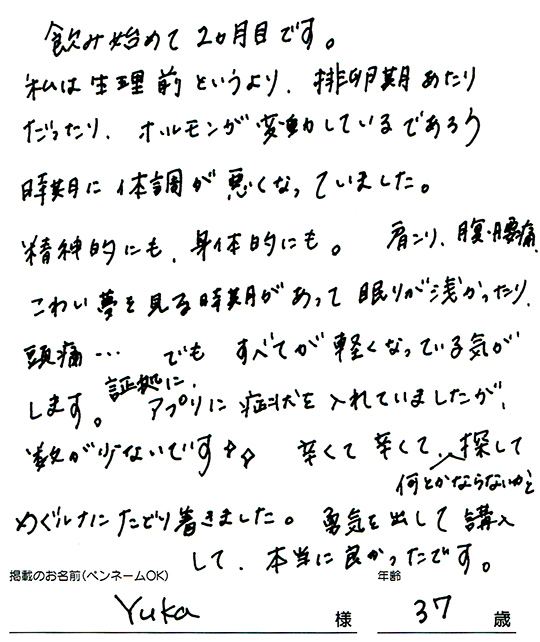 飲み始めて2ヶ月目です。
私は生理前というより、排卵期あたり
だったり、ホルモンが変動しているであろう
時期に体調が悪くなっていました。
精神的にも、身体的にも。 肩こり、腹・腰痛、
こわい夢を見る時期があって眠りが浅かったり、
頭痛… でも すべてが軽くなっている気が
します。証拠に、アプリに症状を入れていましたが、
数が少ないです✧✧ 辛くて辛くて、何とかならないかと探して
めぐルナにたどり着きました。勇気を出して講入
して、本当に良かったです。
掲載のお名前(ペンネームOK) 年齢
Yuka 様 37 歳